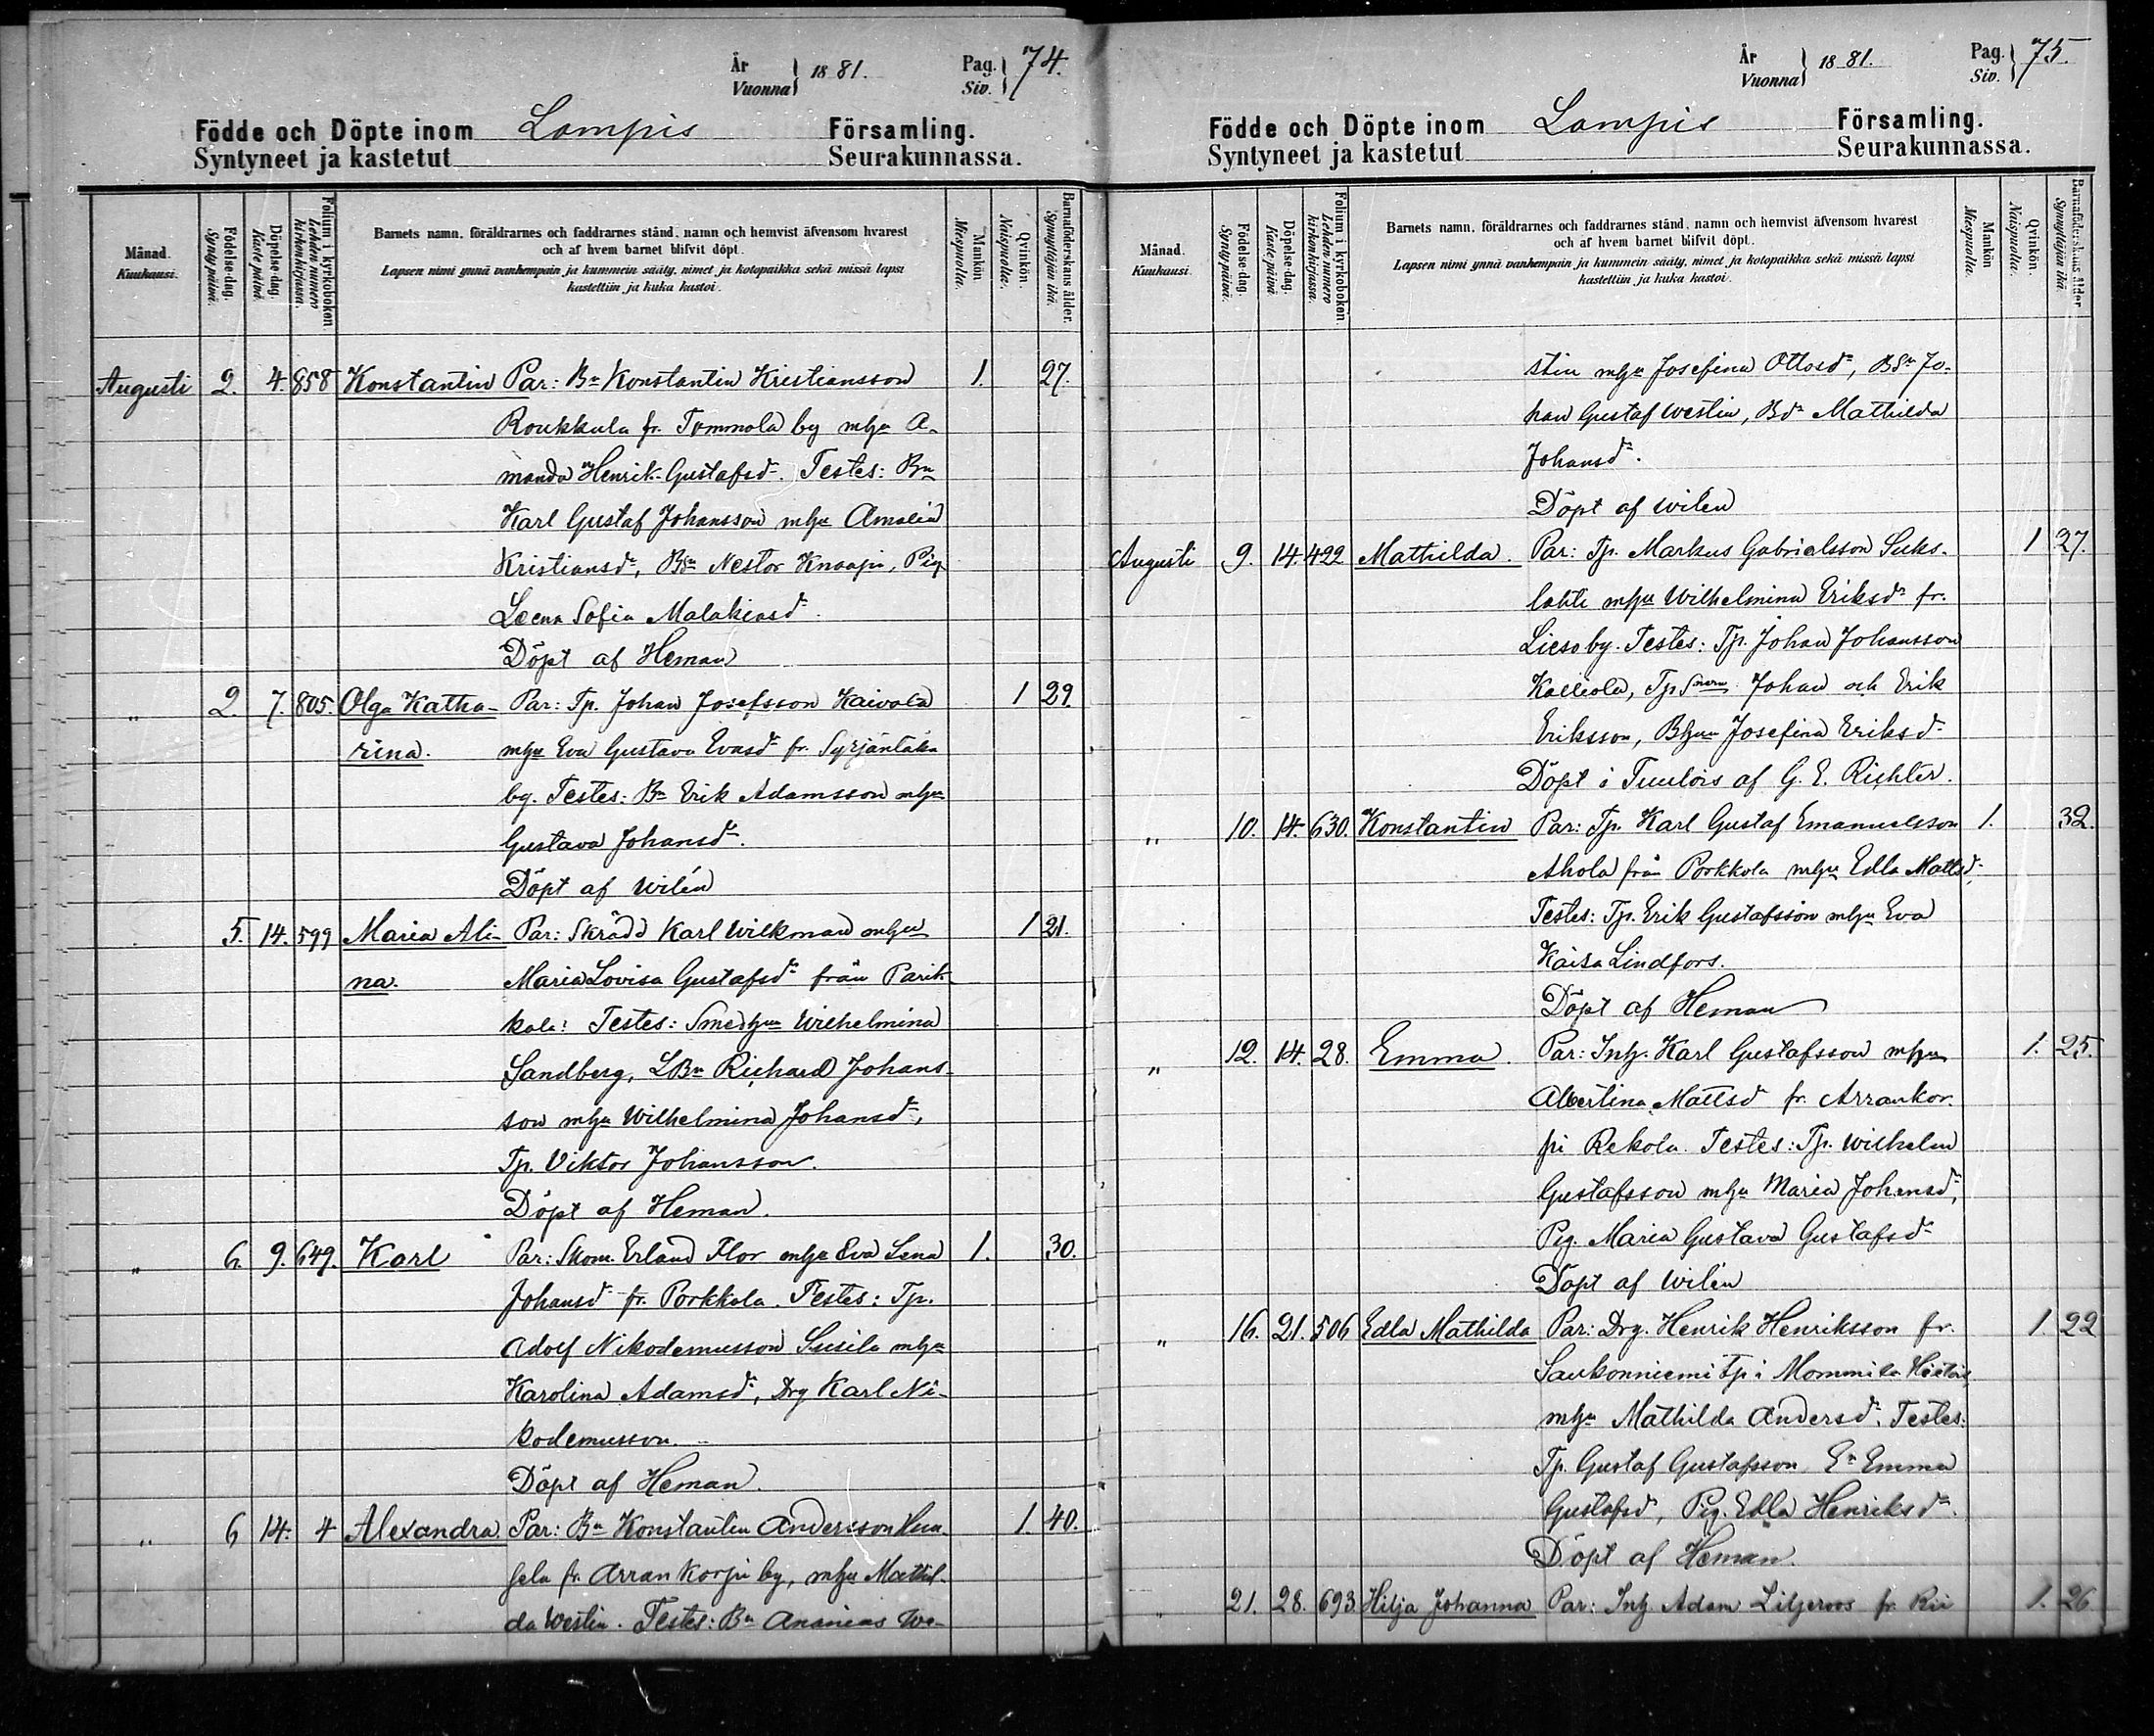 År
Vuonna } 1881.
Pag.
Siv. } 74.
Födde och Döpte inom Lampis Församling.
Syntyneet ja kastetut Seurakunnassa.
Månad.
Kuukausi.
Födelse-dag.
Synty päivä.
Döpelse-dag.
Kaste päivä.
Folium i kyrkoboken
Lehden numero kirkonkirjassa.
Barnets namn, föräldrarnes och faddrarnes stånd, namn och hemvist äfvensom hvarest
och af hvem barnet blifvit döpt.
Lapsen nimi ynnä vanhempain ja kummein sääty, nimet ja kotopaikka sekä missä lapsi
kastettiin ja kuka kastoi.
Mankön.
Miespuolta.
Qvinkön.
Naispuolta.
Barnaföderskans ålder.
Synnyttäjän ikä.
Augusti 2. 4. 858 Konstantin Par: Bn Konstantin Kristiansson 1. 27.
Roukkula fr. Tommola by mhu A-
manda Henrik-Gustafsdr. Testes: Bn
Karl Gustaf Johansson mhu Amalia
Kristiansdr, Bsn Nestor Knaapi, Pig
Leena Sofia Malakiasdr.
Döpt af Heman
„ 2. 7. 805. Olga Katha- Par: Tp. Johan Josefsson Kaivola 1 29.
rina. mhu Eva Gustava Evasdr fr. Syrjäntaka
by. Testes: Bn Erik Adamsson mhu
Gustava Johansdr.
Döpt af Wilén
5. 14. 599 Maria Ali- Par: Skrädd Karl Wilkman mhu 1 21.
na. Maria Lovisa Gustafsdr från Parik-
kala: Testes: Smedhu Wilhelmina
Sandberg, LBn Richard Johans-
son mhu Wilhelmina Johansdr,
Tp. Viktor Johansson.
Döpt af Heman.
„ 6. 9. 649. Karl Par: Skom. Erland Flor mhu Eva Lena 1. 30.
Johansdr fr. Porkkola. Testes: Tp.
Adolf Nikodemusson Susila mhu
Karolina Adamsdr, Drg Karl Ni-
kodemusson.
Döpt af Heman.
„ 6 14. 4 Alexandra. Par: Bn Konstantin Andersson 1. 40.
fr Arrankorpi by, mhu Mathil-
da Westin. Testes: Bn Ananias We-
År
Vuonna } 1881.
Pag.
Siv. } 75.
Födde och Döpte inom Lampis Församling.
Syntyneet ja kastetut Seurakunnassa.
Månad.
Kuukausi.
Födelse-dag.
Synty päivä.
Döpelse-dag.
Kaste päivä
Folium i kyrkoboken.
Lehden numero kirkonkirjassa.
Barnets namn, föräldrarnes och faddrarnes stånd, namn och hemvist äfvensom hvarest
och af hvem barnet blifvit döpt.
Lapsen nimi ynnä vanhempain ja kummein sääty, nimet ja kotopaikka sekä missä lapsi
kastettiin ja kuka kastoi.
Mankön
Miespuolta.
Qvinkön.
Naispuolta.
Barnaföderskans ålder
Synnyttäjän ikä.
stin mhu Josefina Ottosdr, BSn Jo-
han Gustaf Westin, Bdr Mathilda
Johansdr.
Döpt af Wilén
Augusti 9. 14. 422 Mathilda. Par: Tp. Markus Gabrielsson Suks- 1 27.
lahti mhu Wilhelmina Eriksdr fr.
Lieso by. Testes: Tp. Johan Johansson
Kalliola, Tp Snerna Johan och Erik
Eriksson, Bhun Josefina Eriksdr
Döpt i Tuulois af G. E. Richter.
„ 10. 14. 630. Konstantin Par: Tp. Karl Gustaf Emanuelsson 1. 32.
Ahola från Porkkola mhu Edla Mattsdr.
Testes: Tp. Erik Gustafsson mhu Eva
Kaisa Lindfors.
Döpt af Heman
„ 12. 14. 28. Emma. Par: Inh. Karl Gustafsson mhu 1. 25.
Albertina Mattsd fr. Arrankor-
pi Rekola. Testes: Tp. Wilhelm
Gustafsson mhu Maria Johansdr,
Pig. Maria Gustava Gustafsdr
Döpt af Wilén
„ 16. 21. 506 Edla Mathilda Par: Drg. Henrik Henriksson fr. 1. 22
Saukonniemi tp i Mommila
mhu Mathilda Andersdr. Testes:
Tp. Gustaf Gustafsson, En Emma
Gustafsd, Pig. Edla Henriksdr.
Döpt af Heman.
„ 21. 28. 693. Hilja Johanna Par: Inh Adam Liljeroos fr. Rii 1. 26